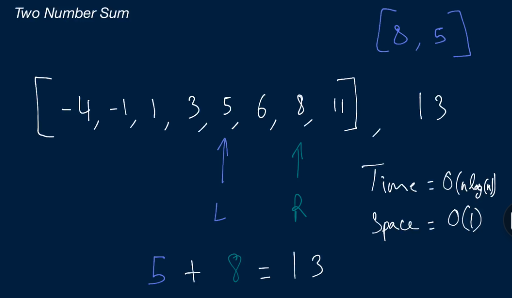 Two Number Sum
[8, 5]
[-4, -1, 1, 3, 5, 6, 8, 11], 13
Time = O(nlog(n))
L R
Space = O(1)
5 + 8 = 13